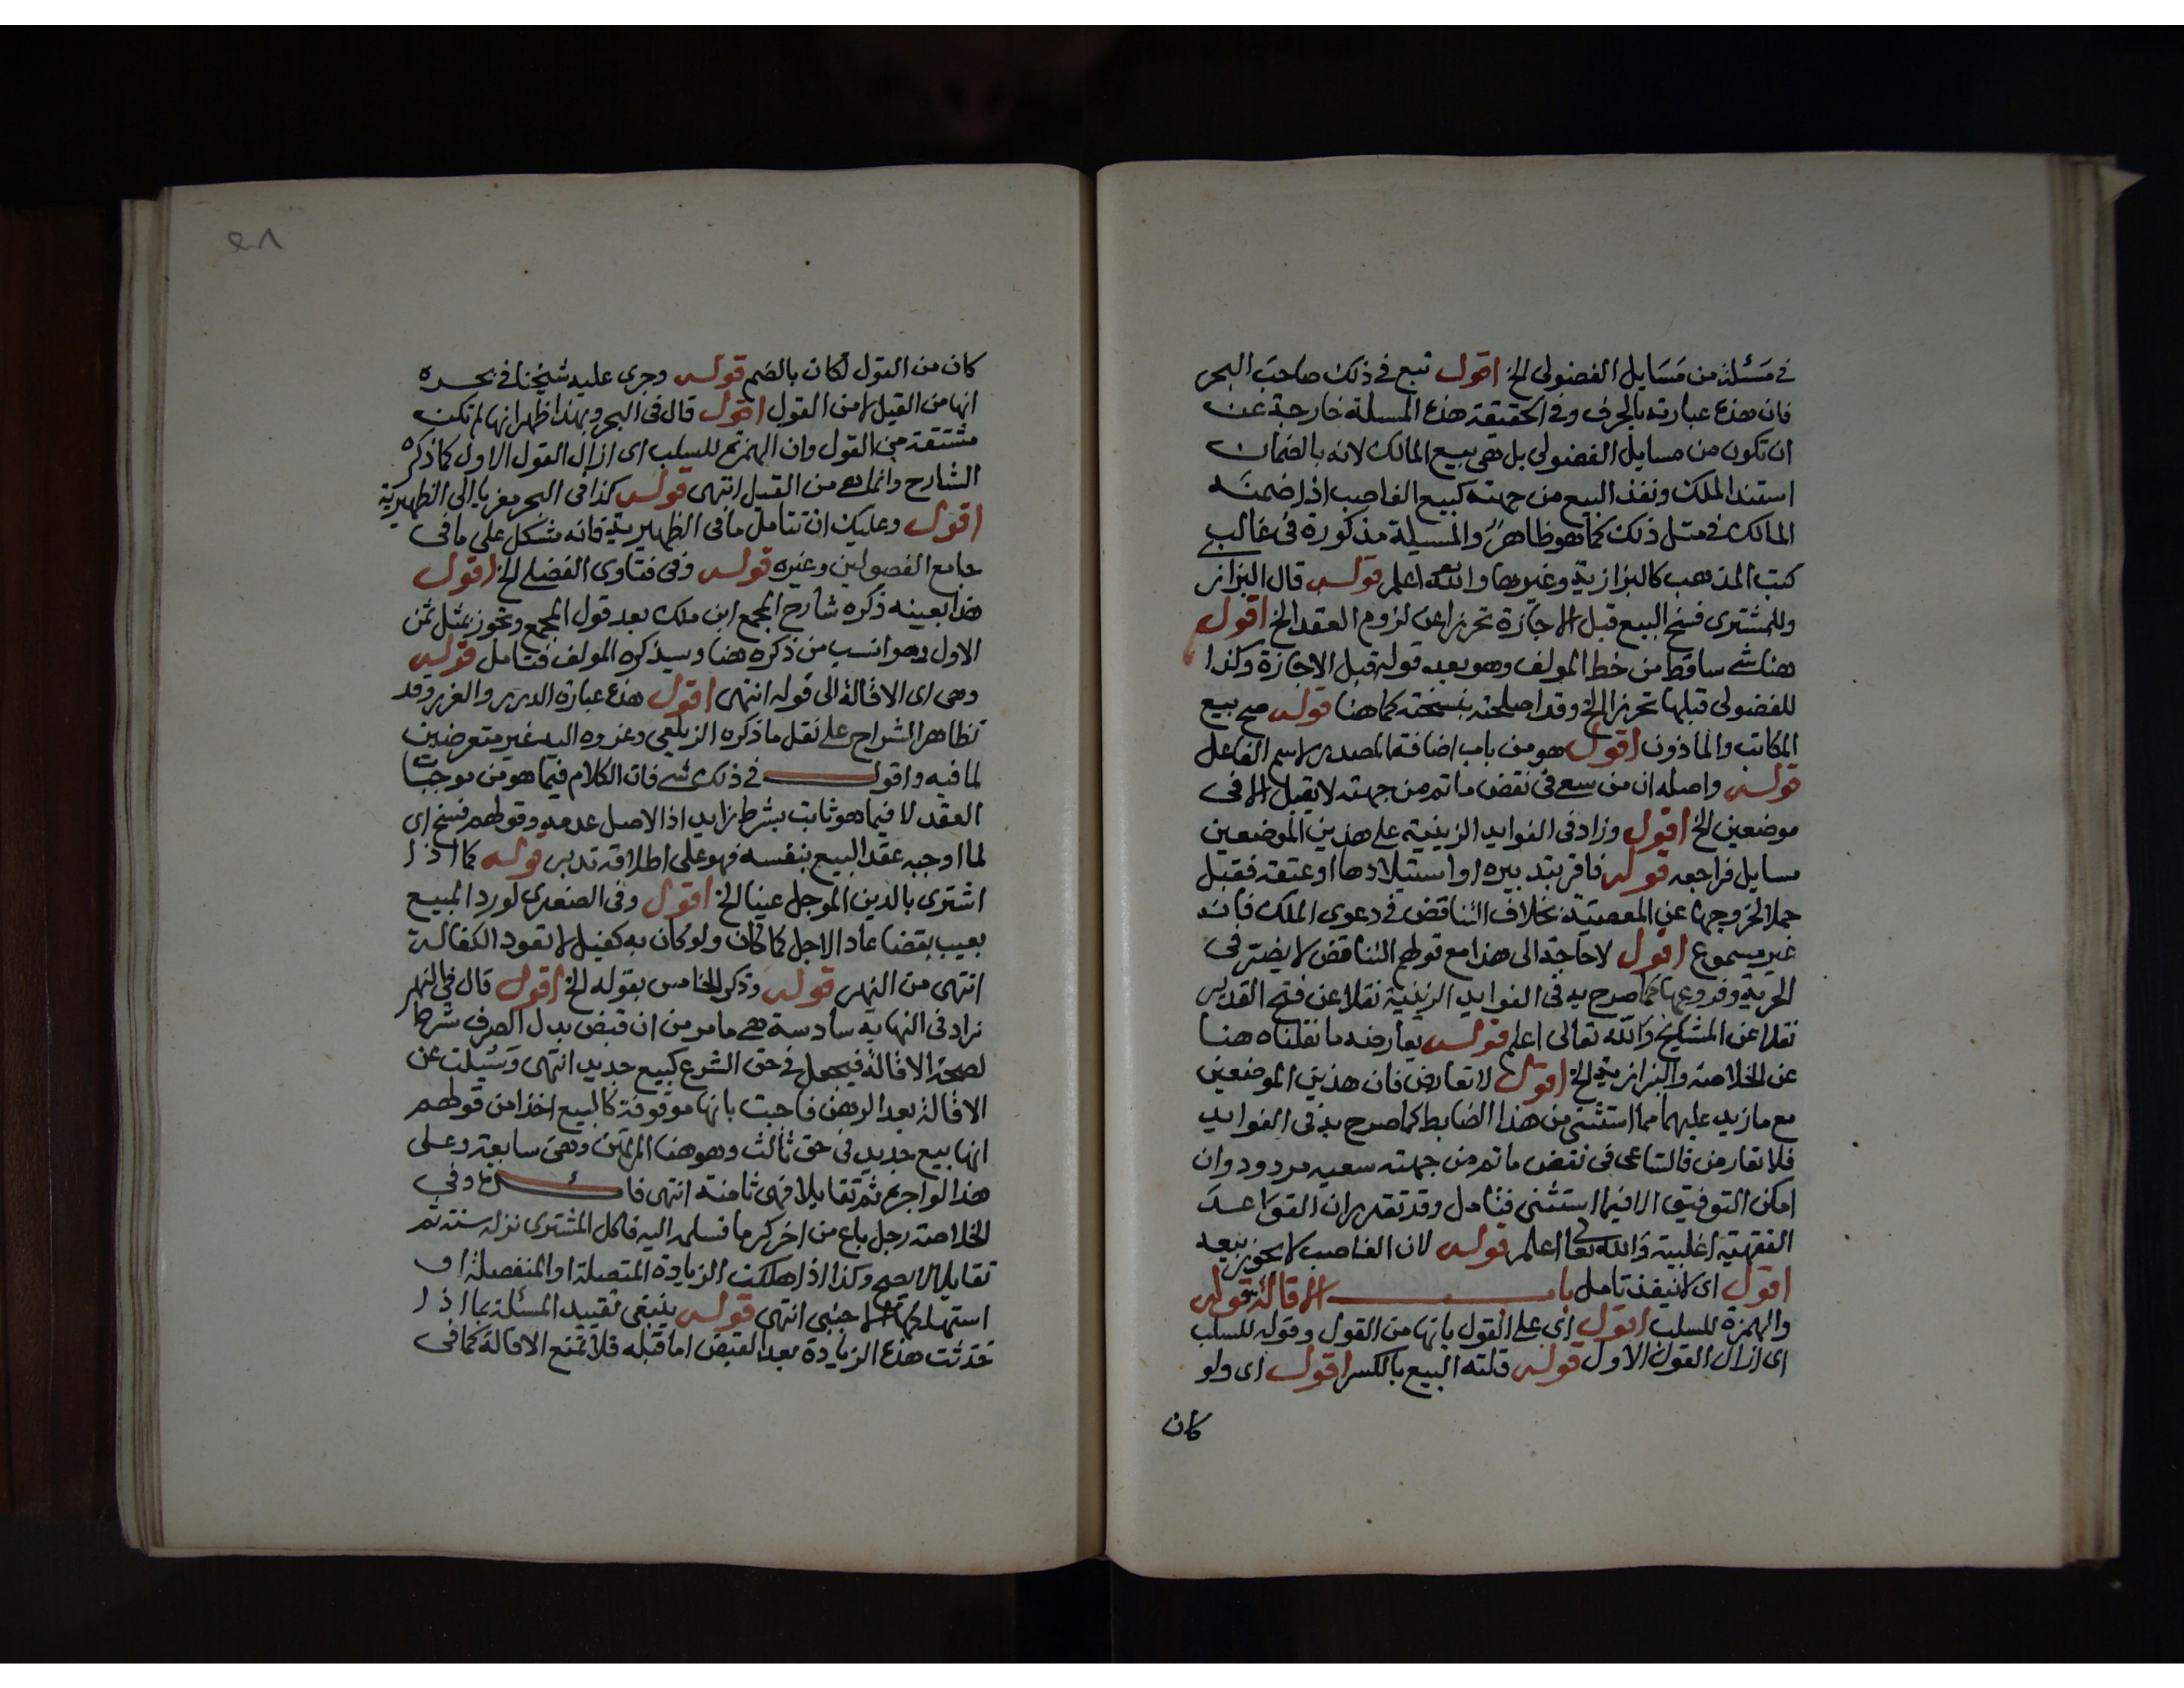 في مسئلة من مسايل الفضولى الخ اقول تبع في ذلك صاحب البحر
فان هذه عبارته بالحرف وفي الحقيقة هذه المسلة خارجة عن
ان تكون من مسايل الفضولى بل هى بيع المالك لانه بالضمان
استند الملك ونفذ البيع من جهته كبيع الغاصب اذا ضمنه
المالك في مثل ذلك كما هو ظاهر والمسيلة مذكورة فى غالب
كتب المذهب كالبزازية وغيرها والله اعلم قوله قال البزاز
وللمشترى فسخ البيع قبل الاجازة تحرزا عن لزوم العقد الخ اقول
هنا شى ساقط من خط المولف وهو بعد قوله قبل الاجازة وكذا
للفضولى قبلها تحرزا الخ وقد اصلحته بنسخته كما هنا قوله صح بيع
المكاتب والماذون اقول هو من باب اضافة المصدر لاسم الفاعل
قوله واصله ان من سعى في نقض ما تم من جهته لا يقبل الا فى
موضعين الخ اقول وزاد فى الفوايد الزينية على هذين الموضعين
مسايل فراجعه قوله فاقر بتدبيره او استيلادها او عتقه فقبل
حملا لخروجها عن المعصية بخلاف التناقض في دعوى الملك فانه
غير مسموع اقول لا حاجة الى هذا مع قولهم التناقض لا يضر فى
الحرية وفروعها كما صرح به فى الفوايد الزينية نقلا عن فتح القدير
نقلا عن المشايخ والله تعالى اعلم قوله يعارضه ما نقلناه هنا
عن الخلاصة والبزازية الخ اقول لا تعارض فان هذين الموضعين
مع ما زيد عليهما مما استثنى من هذا الضابط كما صرح به فى الفوايد
فلا تعارض فالساعى فى نقض ما تم من جهته سعيه مردود وان
امكن التوفيق الا فيما استثنى فتامل وقد تقدر ان القواعد
الفقهية اغلبية والله تعالى اعلم قوله لان الغاصب لا يجوز بيعه
اقول اى لا ينفذ تامل باب الاقالة قوله
والهمزة للسلب اقول اى على القول بانها من القول وقوله للسلب
اى ازال القول الاول قوله قلته البيع بالكسر اقول اى ولو
كان
كان من القول لكان بالضم قوله وجرى عليه شيخنا في بحره
انها من القيل لا من القول اقول قال فى البحر وبهذا ظهر انها لم تكن
مشتقة من القول وان الهمزة للسلب اى ازال القول الاول كما ذكره
الشارح وانما هى من القيل انتهى قوله كذا فى البحر معزيا الى الظهيرية
اقول وعليك ان تتامل ما فى الظهيرية فانه مشكل على ما فى
جامع الفصولين وغيره قوله وفى فتاوى الفضلى الخ اقول
هذا بعينه ذكره شارح المجمع ابن ملك بعد قول المجمع وتجوز بمثل ثمن
الاول وهو انسب من ذكره هنا وسيذكره المولف فتامل قوله
وهى اى الاقالة الى قوله انتهى اقول هذه عبارة الدرر والغرر وقد
تظاهر الشراح على نقل ما ذكره الزيلعى وعزوه اليه غير متعرضين
لما فيه واقول في ذلك شى فان الكلام فيما هو من موجبات
العقد لا فيما هو ثابت بشرط زايد اذ الاصل عدمه وقولهم فسخ اى
لما اوجبه عقد البيع بنفسه فهو على اطلاقه تدبر قوله كما اذا
اشترى بالدين الموجل عينا الخ اقول وفى الصغرى لورد المبيع
بعيب بقضا عاد الاجل كما كان ولو كان به كفيل لا تعود الكفالة
انتهى من النهر قوله وذكر الخامس بقوله الخ اقول قال في النهر
زاد فى النهايه سادسة هى ما مر من ان قبض بدل الصرف شرط
لصحة الاقالة فيجعل في حق الشرع كبيع جديد انتهى وسئيلت عن
الاقالة بعد الرهن فاجبت بانها موقوفة كالبيع اخذا من قولهم
انها بيع جديد فى حق ثالث وهو هنا المرتهن وهى سابعة وعلى
هذا لو اجر ثم تقايلا فهى ثامنة انتهى فائدة وفي
الخلاصة رجل باع من اخر كرما فسلمه اليه فاكل المشترى نزله سنة ثم
تقايلا لا يصح وكذا اذا هلكت الزيادة المتصلة او المنفصلة او
استهلكها الاجنبى انتهى قوله ينبغى تقييد المسئلة بما اذا
حدثت هذه الزيادة بعد القبض اما قبله فلا تمنع الاقالة كما فى